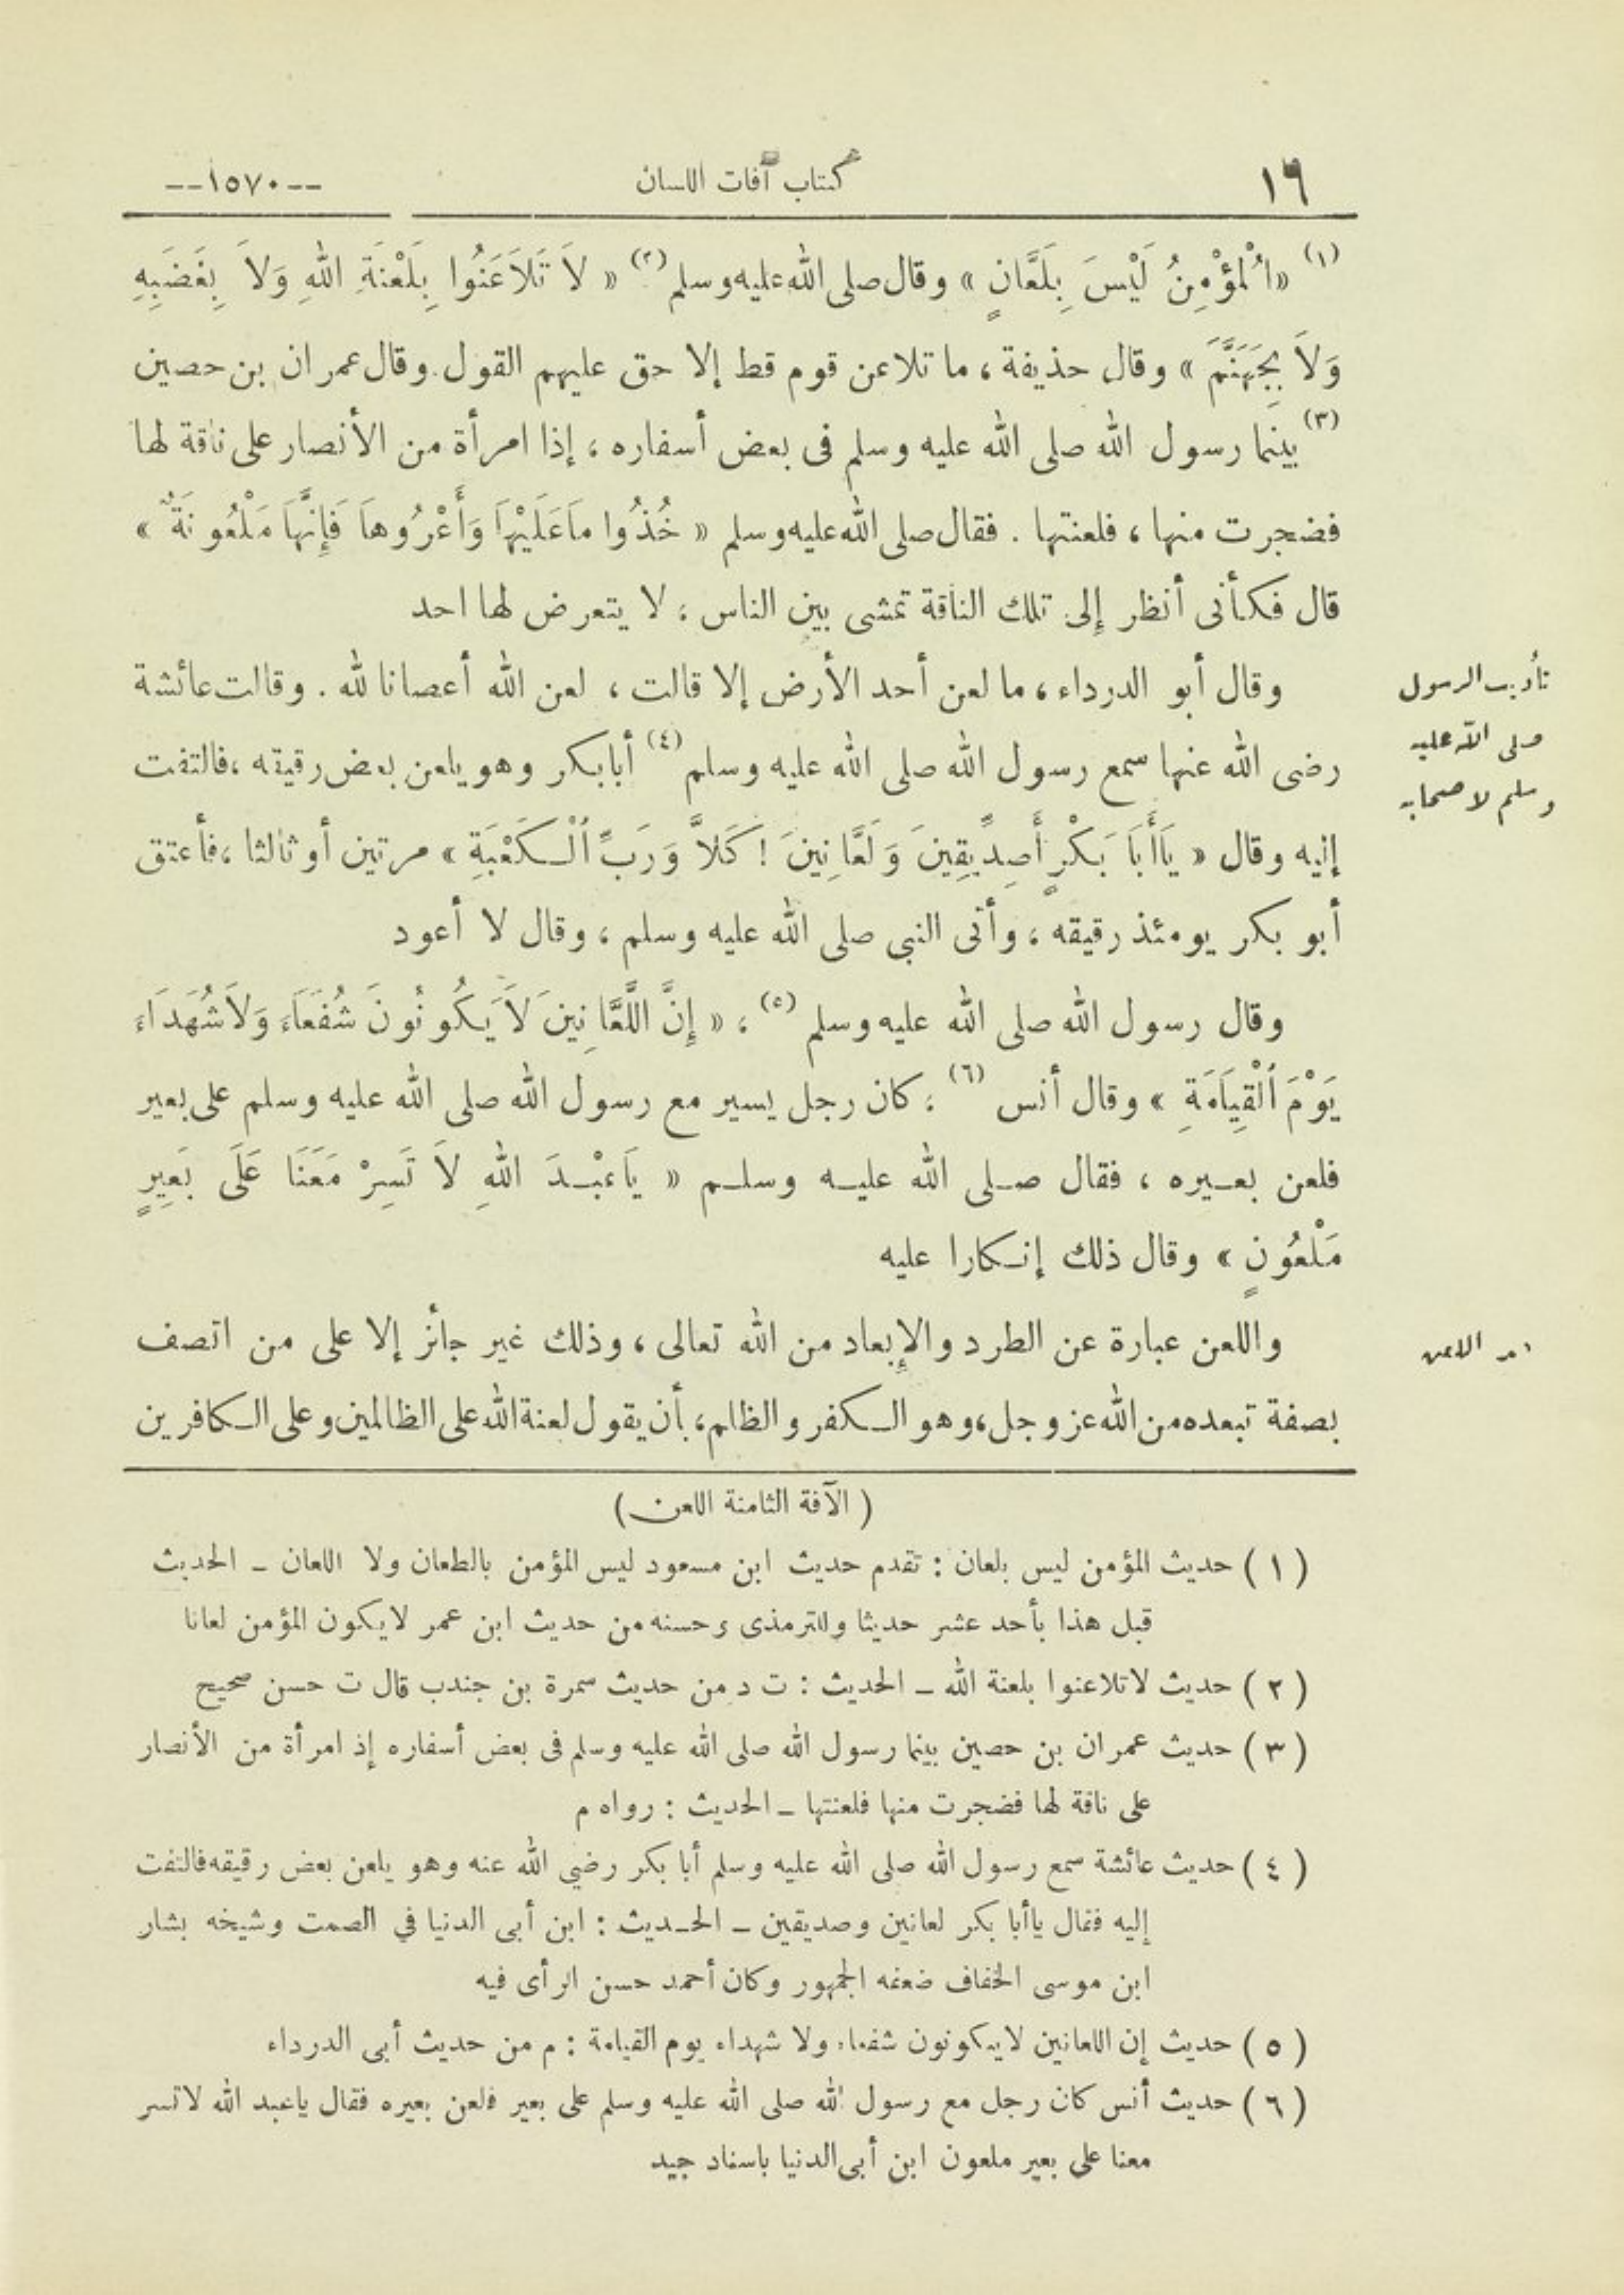 ١٦ كتاب آفات اللسان --١٥٧٠--
(١) «اَلْمُؤْمِنُ لَيْسَ بِلَعَّانٍ» وقال صلى الله عليه وسلم (٢) « لاَ تَلاَعَنُوا بِلَعْنَةِ اللهِ وَلاَ بِغَضَبِهِ
وَلاَ بِجَهَنَّمَ » وقال حذيفة ، ما تلاعن قوم قط إلا حق عليهم القول. وقال عمران بن حصين
(٣) بينما رسول الله صلى الله عليه وسلم فى بعض أسفاره ، إذا امرأة من الأنصار على ناقة لها
فضجرت منها ، فلعنتها . فقال صلى الله عليه وسلم « خُذُوا مَا عَلَيْهَا وَأَعْرُوهَا فَإِنَّهَا مَلْعُونَةٌ »
قال فكأنى أنظر إلى تلك الناقة تمشى بين الناس ، لا يتعرض لها احد
وقال أبو الدرداء ، ما لعن أحد الأرض إلا قالت ، لعن الله أعصانا لله . وقالت عائشة
رضى الله عنها سمع رسول الله صلى الله عليه وسلم (٤) أبابكر وهو يلعن بعض رقيقه ، فالتفت
إليه وقال « يَاأَبَا بَكْرٍ أَصِدِّيقِينَ وَلَعَّانِينَ ! كَلاَّ وَرَبِّ اُلْكَعْبَةِ » مرتين أو ثالثا ، فأعتق
أبو بكر يومئذ رقيقه ، وأتى النبى صلى الله عليه وسلم ، وقال لا أعود
وقال رسول الله صلى الله عليه وسلم (٥) ، « إِنَّ اللَّعَّانِينَ لاَ يَكُونُونَ شُفَعَاءَ وَلاَ شُهَدَاءَ
يَوْمَ اُلْقِيَامَةِ » وقال أنس (٦) ، كان رجل يسير مع رسول الله صلى الله عليه وسلم على بعير
فلعن بعيره ، فقال صلى الله عليه وسلم « يَاعَبْدَ اللهِ لاَ تَسِرْ مَعَنَا عَلَى بَعِيرٍ
مَلْعُونٍ » وقال ذلك إنكارا عليه
واللعن عبارة عن الطرد والإبعاد من الله تعالى ، وذلك غير جائز إلا على من اتصف
بصفة تبعده من الله عز وجل ، وهو الكفر والظلم ، بأن يقول لعنة الله على الظالمين وعلى الكافرين
تأديب الرسول
صلى الله عليه
وسلم لاصحابه
اللاعن
( الآفة الثامنة اللعن )
( ١ ) حديث المؤمن ليس بلعان : تقدم حديث ابن مسعود ليس المؤمن بالطعان ولا اللعان – الحديث
قبل هذا بأحد عشر حديثا وللترمذى وحسنه من حديث ابن عمر لا يكون المؤمن لعانا
( ٢ ) حديث لاتلاعنوا بلعنة الله – الحديث : ت د من حديث سمرة بن جندب قال ت حسن صحيح
( ٣ ) حديث عمران بن حصين بينما رسول الله صلى الله عليه وسلم فى بعض أسفاره إذ امرأة من الأنصار
على ناقة لها فضجرت منها فلعنتها – الحديث : رواه م
( ٤ ) حديث عائشة سمع رسول الله صلى الله عليه وسلم أبا بكر رضي الله عنه وهو يلعن بعض رقيقه فالتفت
إليه فقال ياأبا بكر لعانين وصديقين – الحديث : ابن أبى الدنيا في الصمت وشيخه بشار
ابن موسى الخفاف ضعفه الجمهور وكان أحمد حسن الرأى فيه
( ٥ ) حديث إن اللعانين لايكونون شفعاء ولا شهداء يوم القيامة : م من حديث أبى الدرداء
( ٦ ) حديث أنس كان رجل مع رسول الله صلى الله عليه وسلم على بعير فلعن بعيره فقال ياعبد الله لاتسر
معنا على بعير ملعون ابن أبى الدنيا باسناد جيد